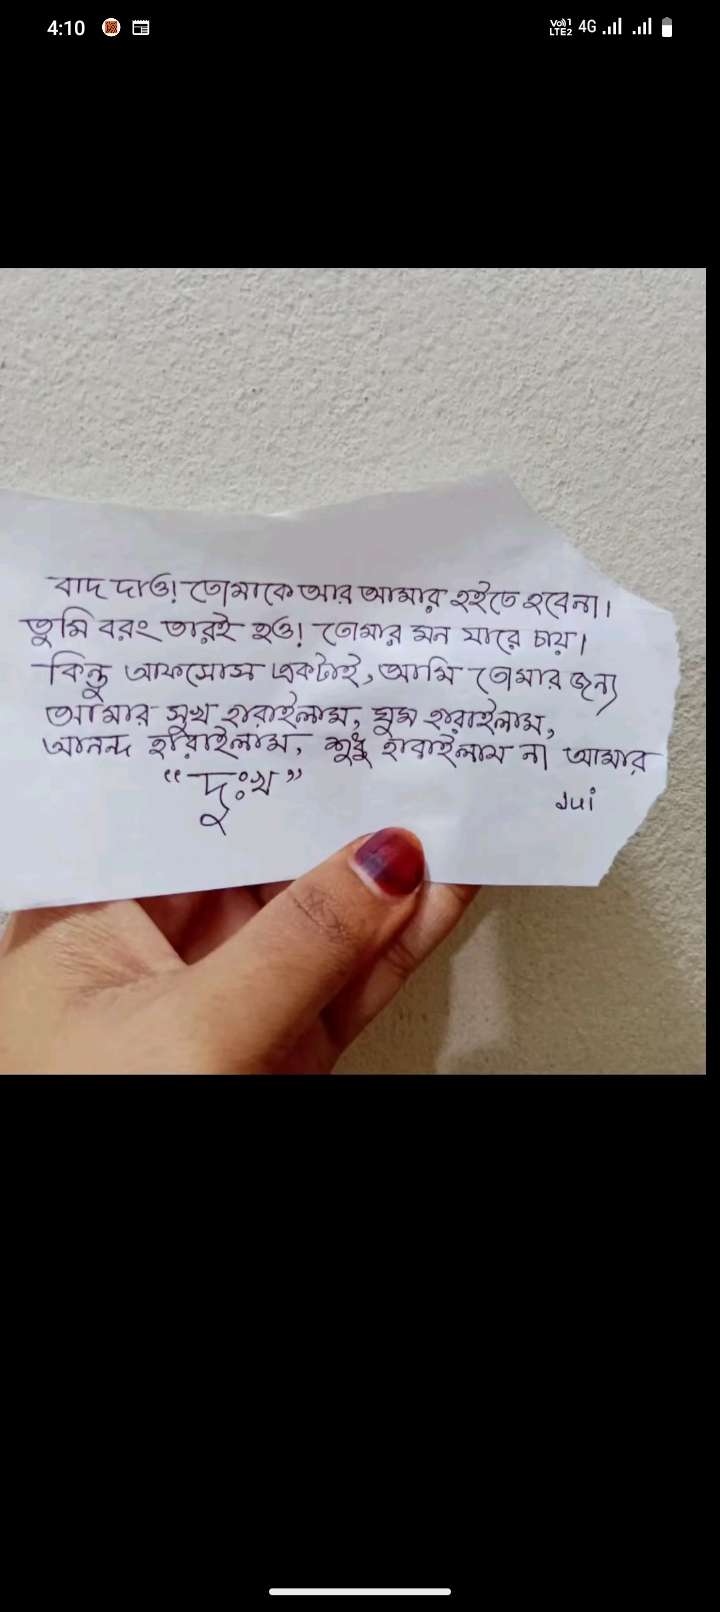 4:10
Vo))1 LTE2 4G
বাদ দাও! তোমাকে আর আমার হইতে হবেনা।
তুমি বরং তারই হও! তোমার মন যারে চায়।
কিন্তু আফসোস একটাই, আমি তোমার জন্য
আমার সুখ হারাইলাম, ঘুম হারাইলাম,
আনন্দ হারাইলাম, শুধু হারাইলাম না আমার
“দুঃখ”
Jui